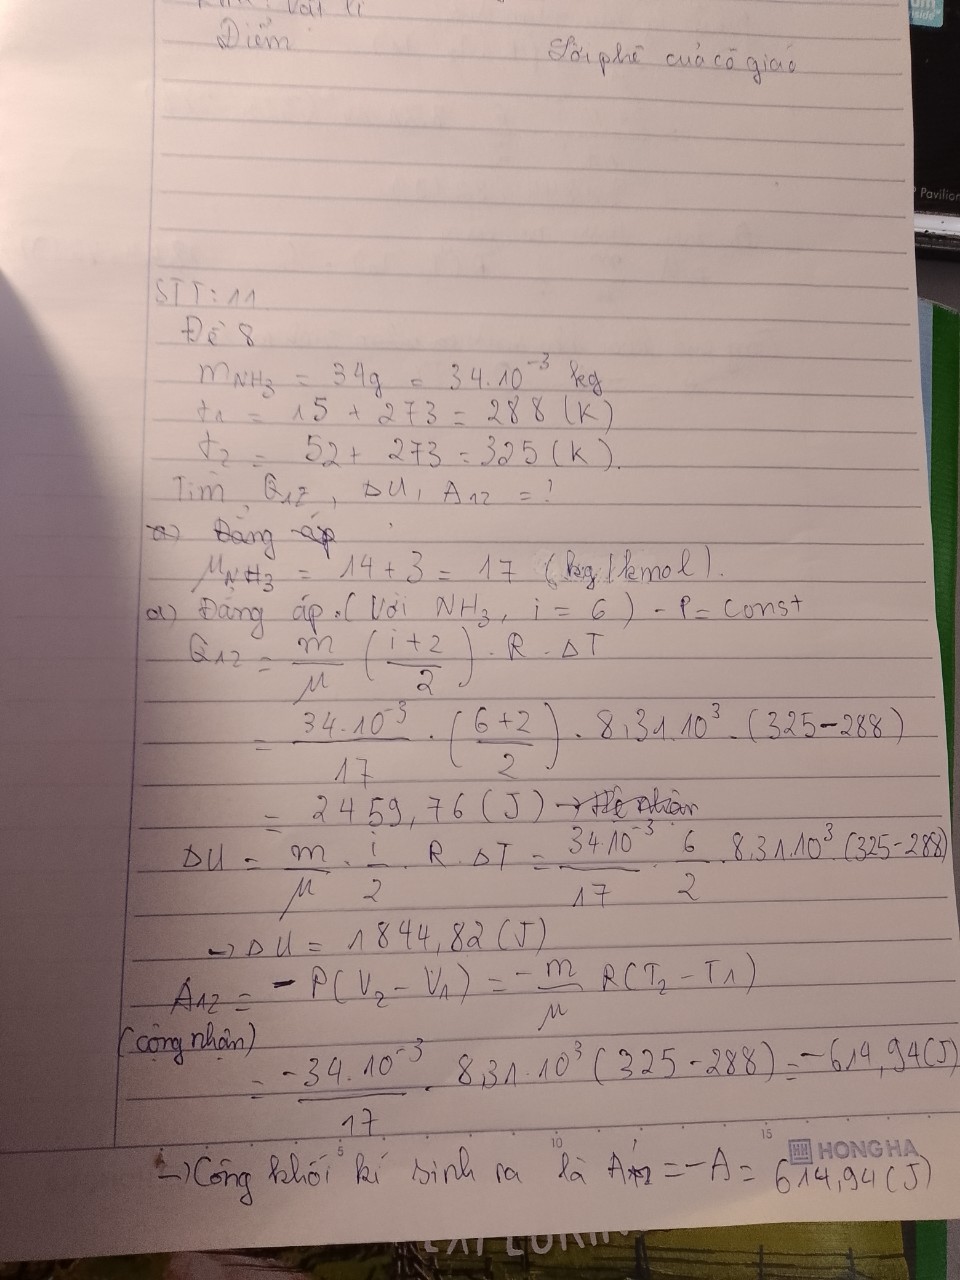 Vật lí
Điểm
Lời phê của cô giáo
um
inside
Pavilion
STT: 11
Đề 8
m_NH3 = 34g = 34.10^-3 kg
t1 = 15 + 273 = 288 (K)
t2 = 52 + 273 = 325 (K).
Tìm Q12, ΔU, A12 = ?
a) Đẳng áp
μ_NH3 = 14 + 3 = 17 (kg/kmol).
a) Đẳng áp. (Với NH3, i = 6) - P = const
Q12 = m/μ (i+2/2) . R . ΔT
= 34.10^-3/17 . (6+2/2) . 8,31.10^3 . (325-288)
= 2459,76 (J)
ΔU = m/μ . i/2 . R . ΔT = 34.10^-3/17 . 6/2 . 8,31.10^3 . (325-288)
→ ΔU = 1844,82 (J)
A12 = - P(V2 - V1) = -m/μ R(T2 - T1)
(công nhận)
= -34.10^-3/17 . 8,31.10^3 (325-288) = -614,94 (J)
5 10 15
HONG HA
→ Công khối kí sinh ra là A'12 = -A = 614,94 (J)